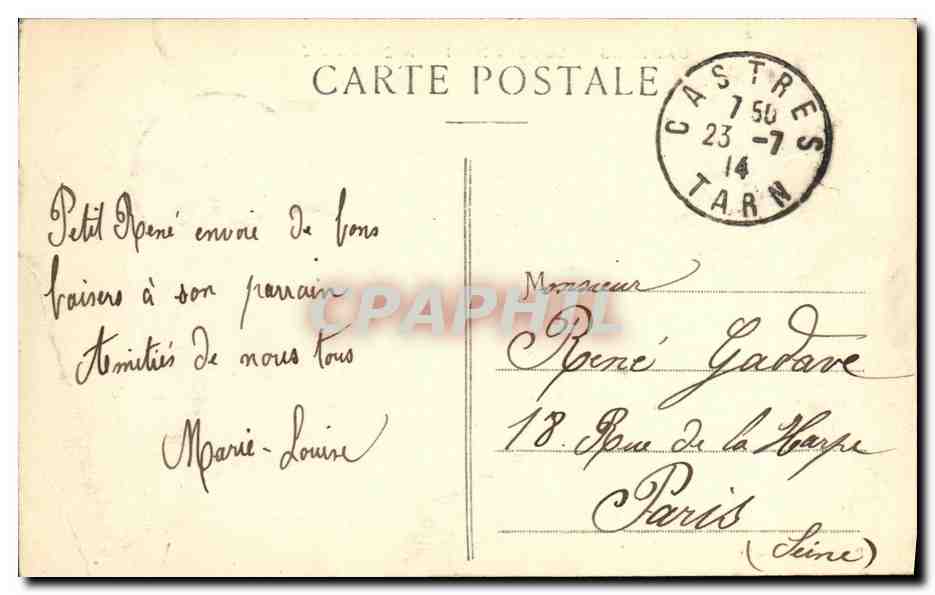 CARTE POSTALE
CASTRES
7 50
23 -7
14
TARN
Petit René envoie de bons
baisers à son parrain
Amitiés de nous tous
Marie-Louise
Monsieur
René Gadave
18. Rue de la Harpe
Paris
(Seine)
CPAPHIL